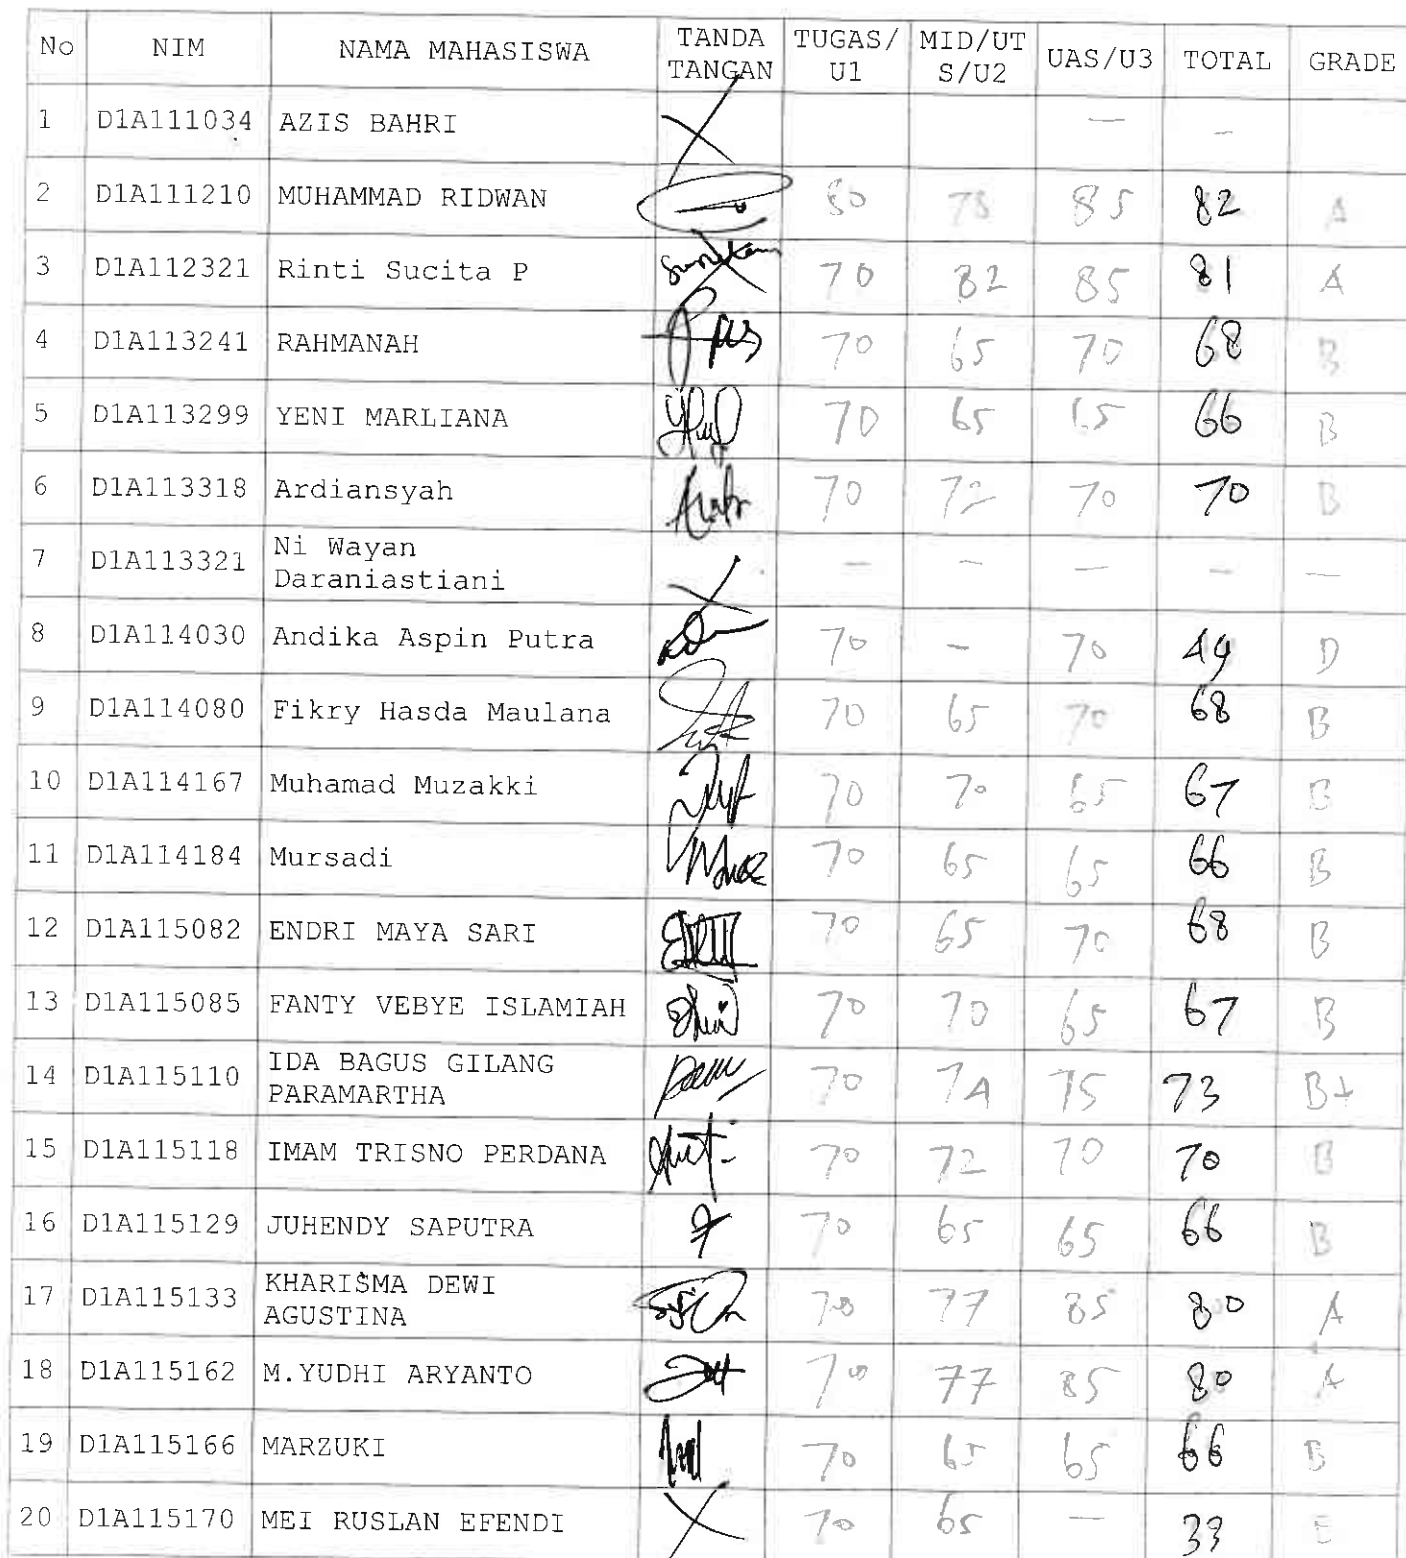 No NIM NAMA MAHASISWA TANDA TANGAN TUGAS/U1 MID/UTS/U2 UAS/U3 TOTAL GRADE
1 D1A111034 AZIS BAHRI — —
2 D1A111210 MUHAMMAD RIDWAN 80 78 85 82 A
3 D1A112321 Rinti Sucita P 70 82 85 81 A
4 D1A113241 RAHMANAH 70 65 70 68 B
5 D1A113299 YENI MARLIANA 70 65 65 66 B
6 D1A113318 Ardiansyah 70 72 70 70 B
7 D1A113321 Ni Wayan
Daraniastiani — — — — —
8 D1A114030 Andika Aspin Putra 70 - 70 49 D
9 D1A114080 Fikry Hasda Maulana 70 65 70 68 B
10 D1A114167 Muhamad Muzakki 70 70 65 67 B
11 D1A114184 Mursadi 70 65 65 66 B
12 D1A115082 ENDRI MAYA SARI 70 65 70 68 B
13 D1A115085 FANTY VEBYE ISLAMIAH 70 70 65 67 B
14 D1A115110 IDA BAGUS GILANG
PARAMARTHA 70 74 75 73 B+
15 D1A115118 IMAM TRISNO PERDANA 70 72 70 70 B
16 D1A115129 JUHENDY SAPUTRA 70 65 65 66 B
17 D1A115133 KHARISMA DEWI
AGUSTINA 70 77 85 80 A
18 D1A115162 M.YUDHI ARYANTO 70 77 85 80 A
19 D1A115166 MARZUKI 70 65 65 66 B
20 D1A115170 MEI RUSLAN EFENDI 70 65 — 33 E